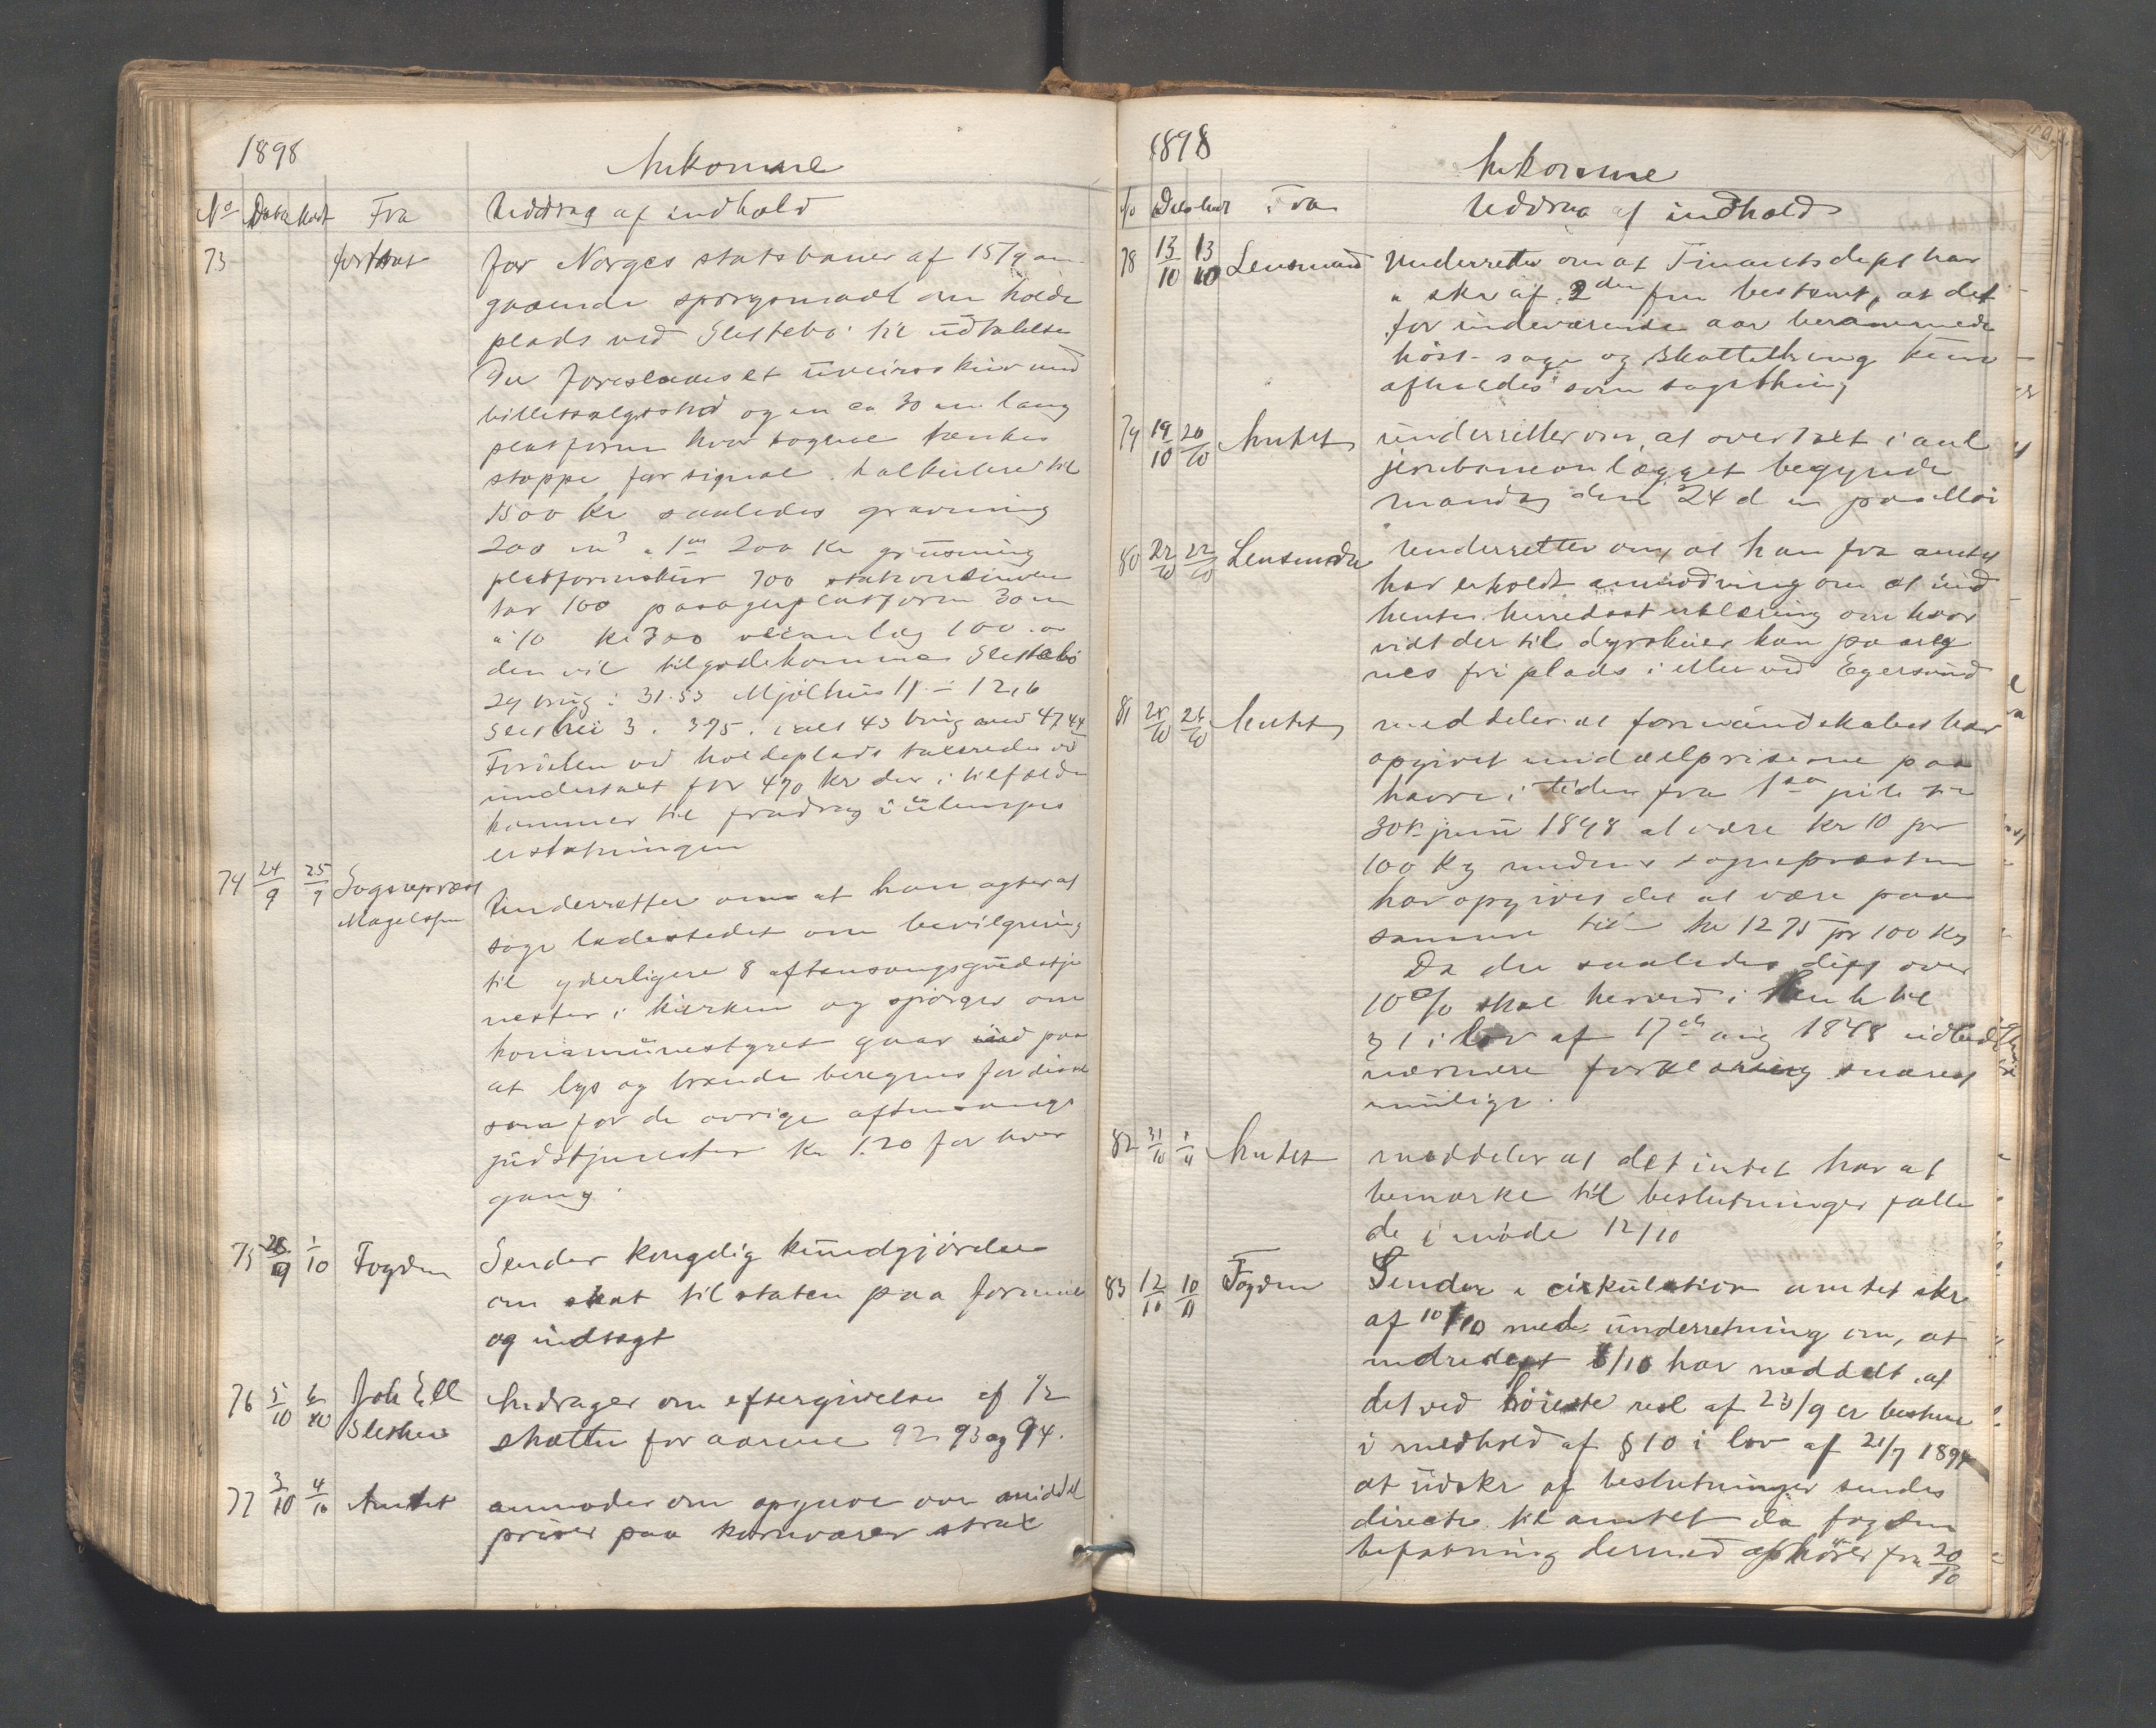 1898
Ankomne
No Dato Modt Fra Uddrag af indhold
73 fortsat for Norges statsbaner af 15/9 an
gaaende spørgsmaal om holde
plads ved Slettebø til udtalelse
Der foreslaaes et uveirsskur med
billetsalgssted og en ca 30 m lang
platform hvor togene tænkes
stoppe for signal. kalkuleret til
1500 Kr saaledes gravning
200 m3 a 1 200 Kr grusning
platformskur 700 stationsinven
tar 100 passagerplatform 30 m
a 10 kr 300 veianlæg 100.00
den vil tilgodekomme Slettebø
29 brug: 31.53 Mjølhus 11 – 12,16
3. 3.75. ialt 43 brug med 47 44
ved holdeplads takseredes ved
underskat for 470 kr der i tilfælde
kommer til fradrag i ulempes
erstatningen
74 24/9 25/9 Sogneprest
Magelssen
Underretter om at han agter at
søge ladestedet om bevilgning
til yderligere 8 aftensangsgudstje
nester i kirken og spørger om
kommunestyret gaar ind paa
at lys og brænde beregnes for disse
som for de øvrige aftensangs
gudstjenester Kr 1.20 for hver
gang.
75 28/9 1/10 Fogden Sender kongelig kundgjørelse
om skat til staten paa formue
og indtægt
76 5/10 6/10 Joh Ell
Andrager om eftergivelse af 1/2
skatten for aarene 92 93 og 94.
77 3/10 4/10 Amtet anmoder om opgave over middel
priser paa kornvarer strax
1898
Ankomne
No Dato Modt Fra Uddrag af indhold
78 13/10 13/10 Lensmand Underretter om at Finantsdept har
i skr af 2den ... bestemt, at det
for indeværende aar berammede
høst- sage og skattething kun
afholdes som sagething
79 19/10 20/10 Amtet underretter om, at overtaxt i anl
jernbaneanlægget begynder
mandag den 24d m paa Moi
80 22/10 22/10 Lensmden Underretter om, at han fra amtet
har erholdt anmodning om at ind
hente herredsst erklæring om hvor
vidt der til dyrskuer kan paareg
nes fri plads i eller ved Egersund
81 25/10 26/10 Amtet meddeler at formandskabet har
opgivet middelpriserne paa
havre i tiden fra 1ste juli til
30te juni 1898 at være kr 10 pr
100 Kg medens sognepræsten
har opgivet det at være paa
samme tid kr 12 75 pr 100 Kg
Da der saaledes diff over
10 % skal herved i henh til
§ 1 i lov af 17de aug 1848 udbedes
nærmere forklaring snarest
muligt.
82 31/10 1/11 Amtet meddeler at det intet har at
bemærke til beslutninger fatte
de i møde 12/10
83 12/10 10/11 Fogden Sender i cirkulation amtet skr
af 10/10 med underretning om, at
indredept 6/10 har meddelt at
det ved høieste resl af 23/9 er bestemt
i medhold af § 10 i lov af 21/7 1894
at udskr af beslutninger sendes
directe til amtet da fogdens
befatning dermed ophører fra 20/10